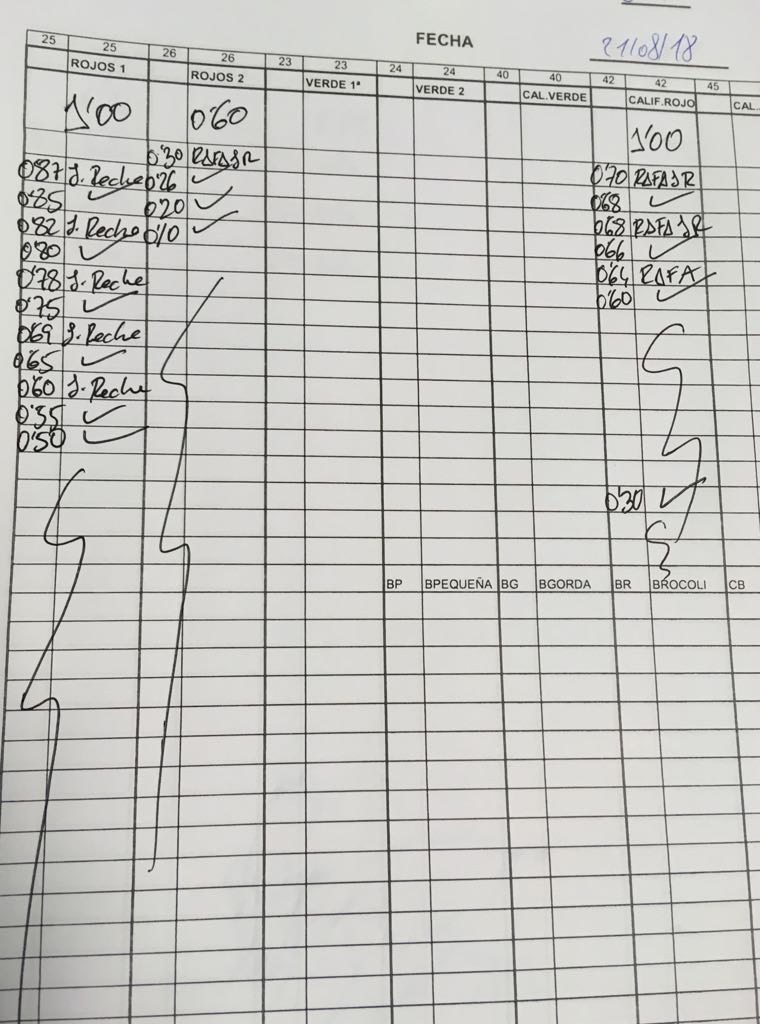 FECHA 21/08/18
25 25 26 26 23 23 24 24 40 40 42 42 45
ROJOS 1 ROJOS 2 VERDE 1ª VERDE 2 CAL.VERDE CALIF.ROJO CAL.
1'00 0'60 1'00
0'30 RAFA JR
0'87 J. Reche 0'26 ✓ 0'70 RAFA JR
0'85 ✓ 0'20 ✓ 0'68 ✓
0'82 J. Reche 0'10 ✓ 0'68 RAFA JR
0'80 ✓ 0'66 ✓
0'78 J. Reche 0'64 RAFA
0'75 ✓ 0'60 ✓
0'69 J. Reche
0'65 ✓
0'60 J. Reche
0'55 ✓
0'50 ✓
0'30 ✓
BP BPEQUEÑA BG BGORDA BR BROCOLI CB